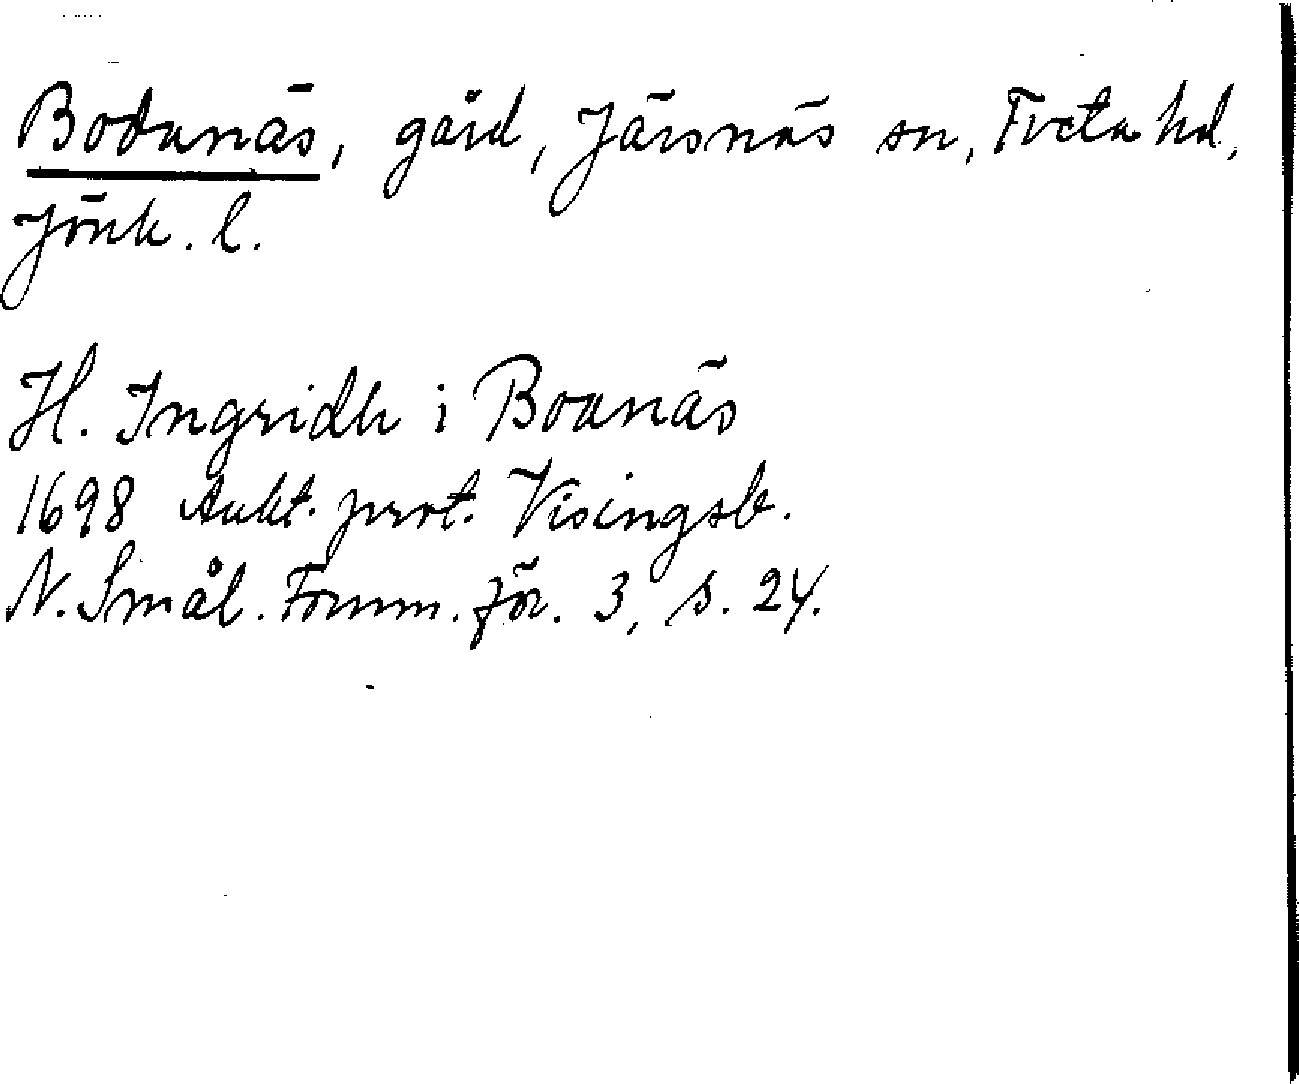 Bodanäs, gård, Järsnäs sn, Tveta hd,
Jönk. l.
H. Ingridh i Boanäs
1698 Aukt. prot. Visingsb.
N. Smål. Fornm. för. 3, s. 24.